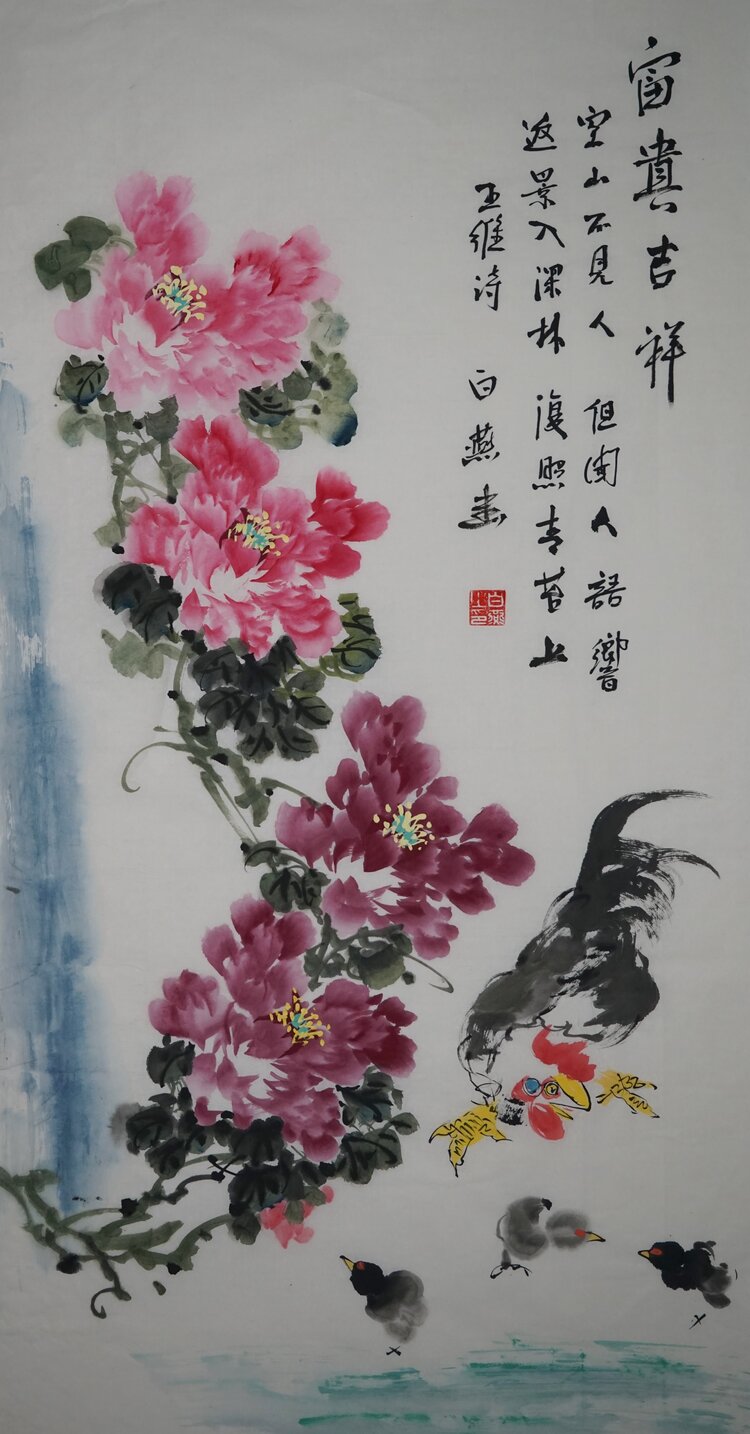 富貴吉祥
空山不見人 但闻人語響
返景入深林 復照青苔上
王維诗 白燕画
白燕之印